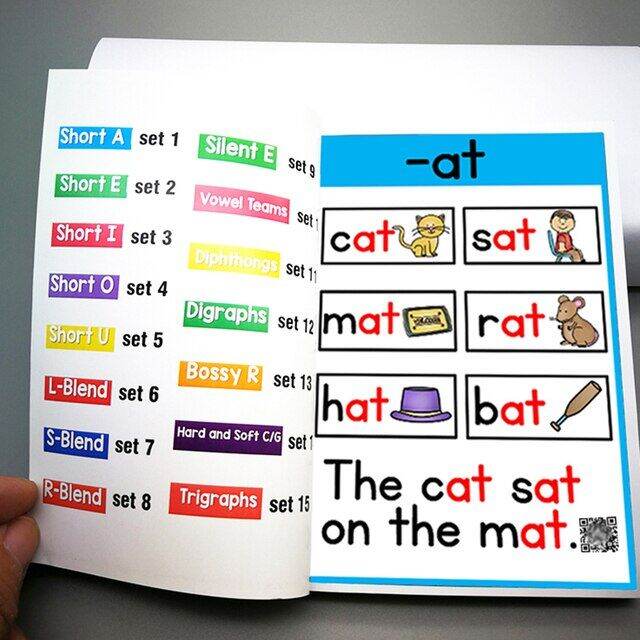 Short A set 1
Short E set 2
Short I set 3
Short O set 4
Short U set 5
L-Blend set 6
S-Blend set 7
R-Blend set 8
Silent E set 9
Vowel Teams set 1
Diphthongs set 11
Digraphs set 12
Bossy R set 13
Hard and Soft C/G set 1
Trigraphs set 15
-at
cat sat
mat rat
hat bat
The cat sat
on the mat.